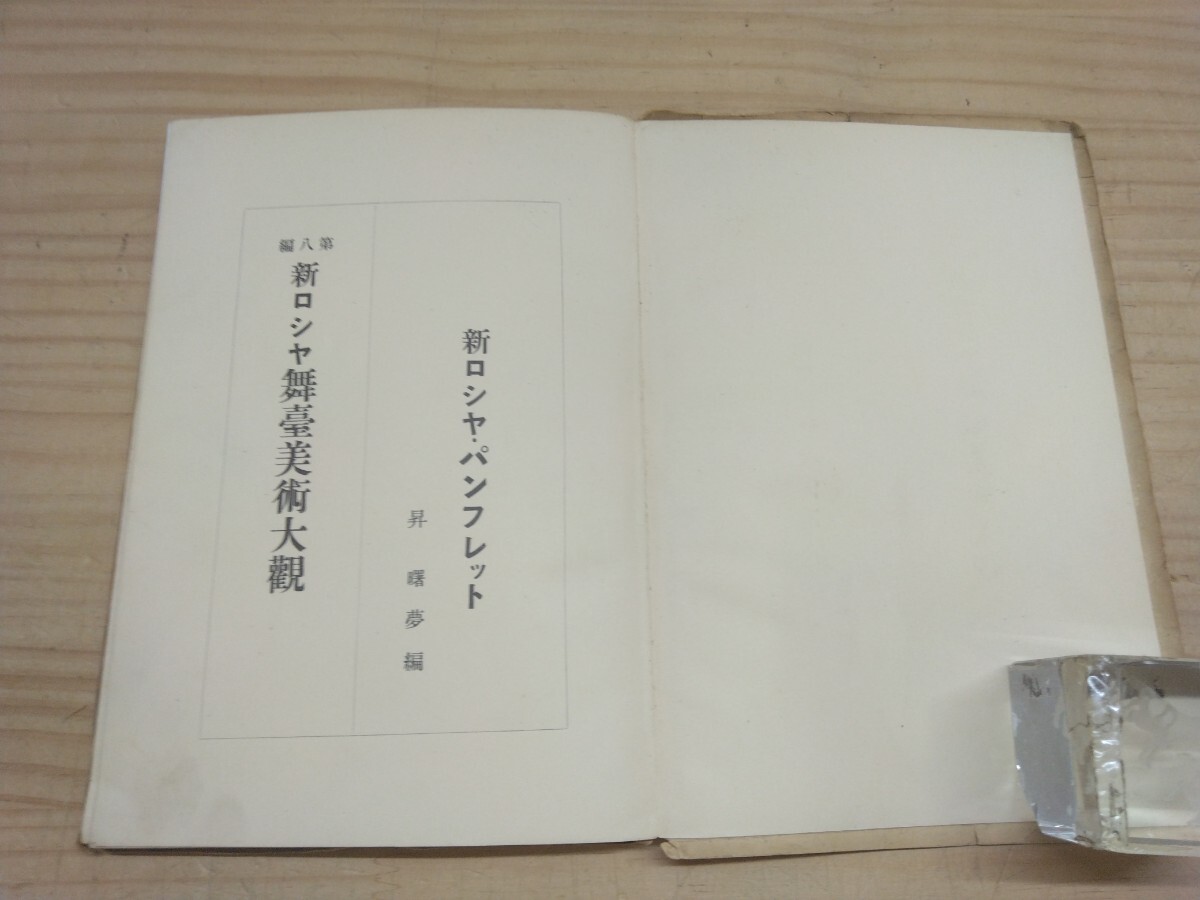 新ロシヤ・パンフレット
昇曙夢編
第八編
新ロシヤ舞臺美術大觀